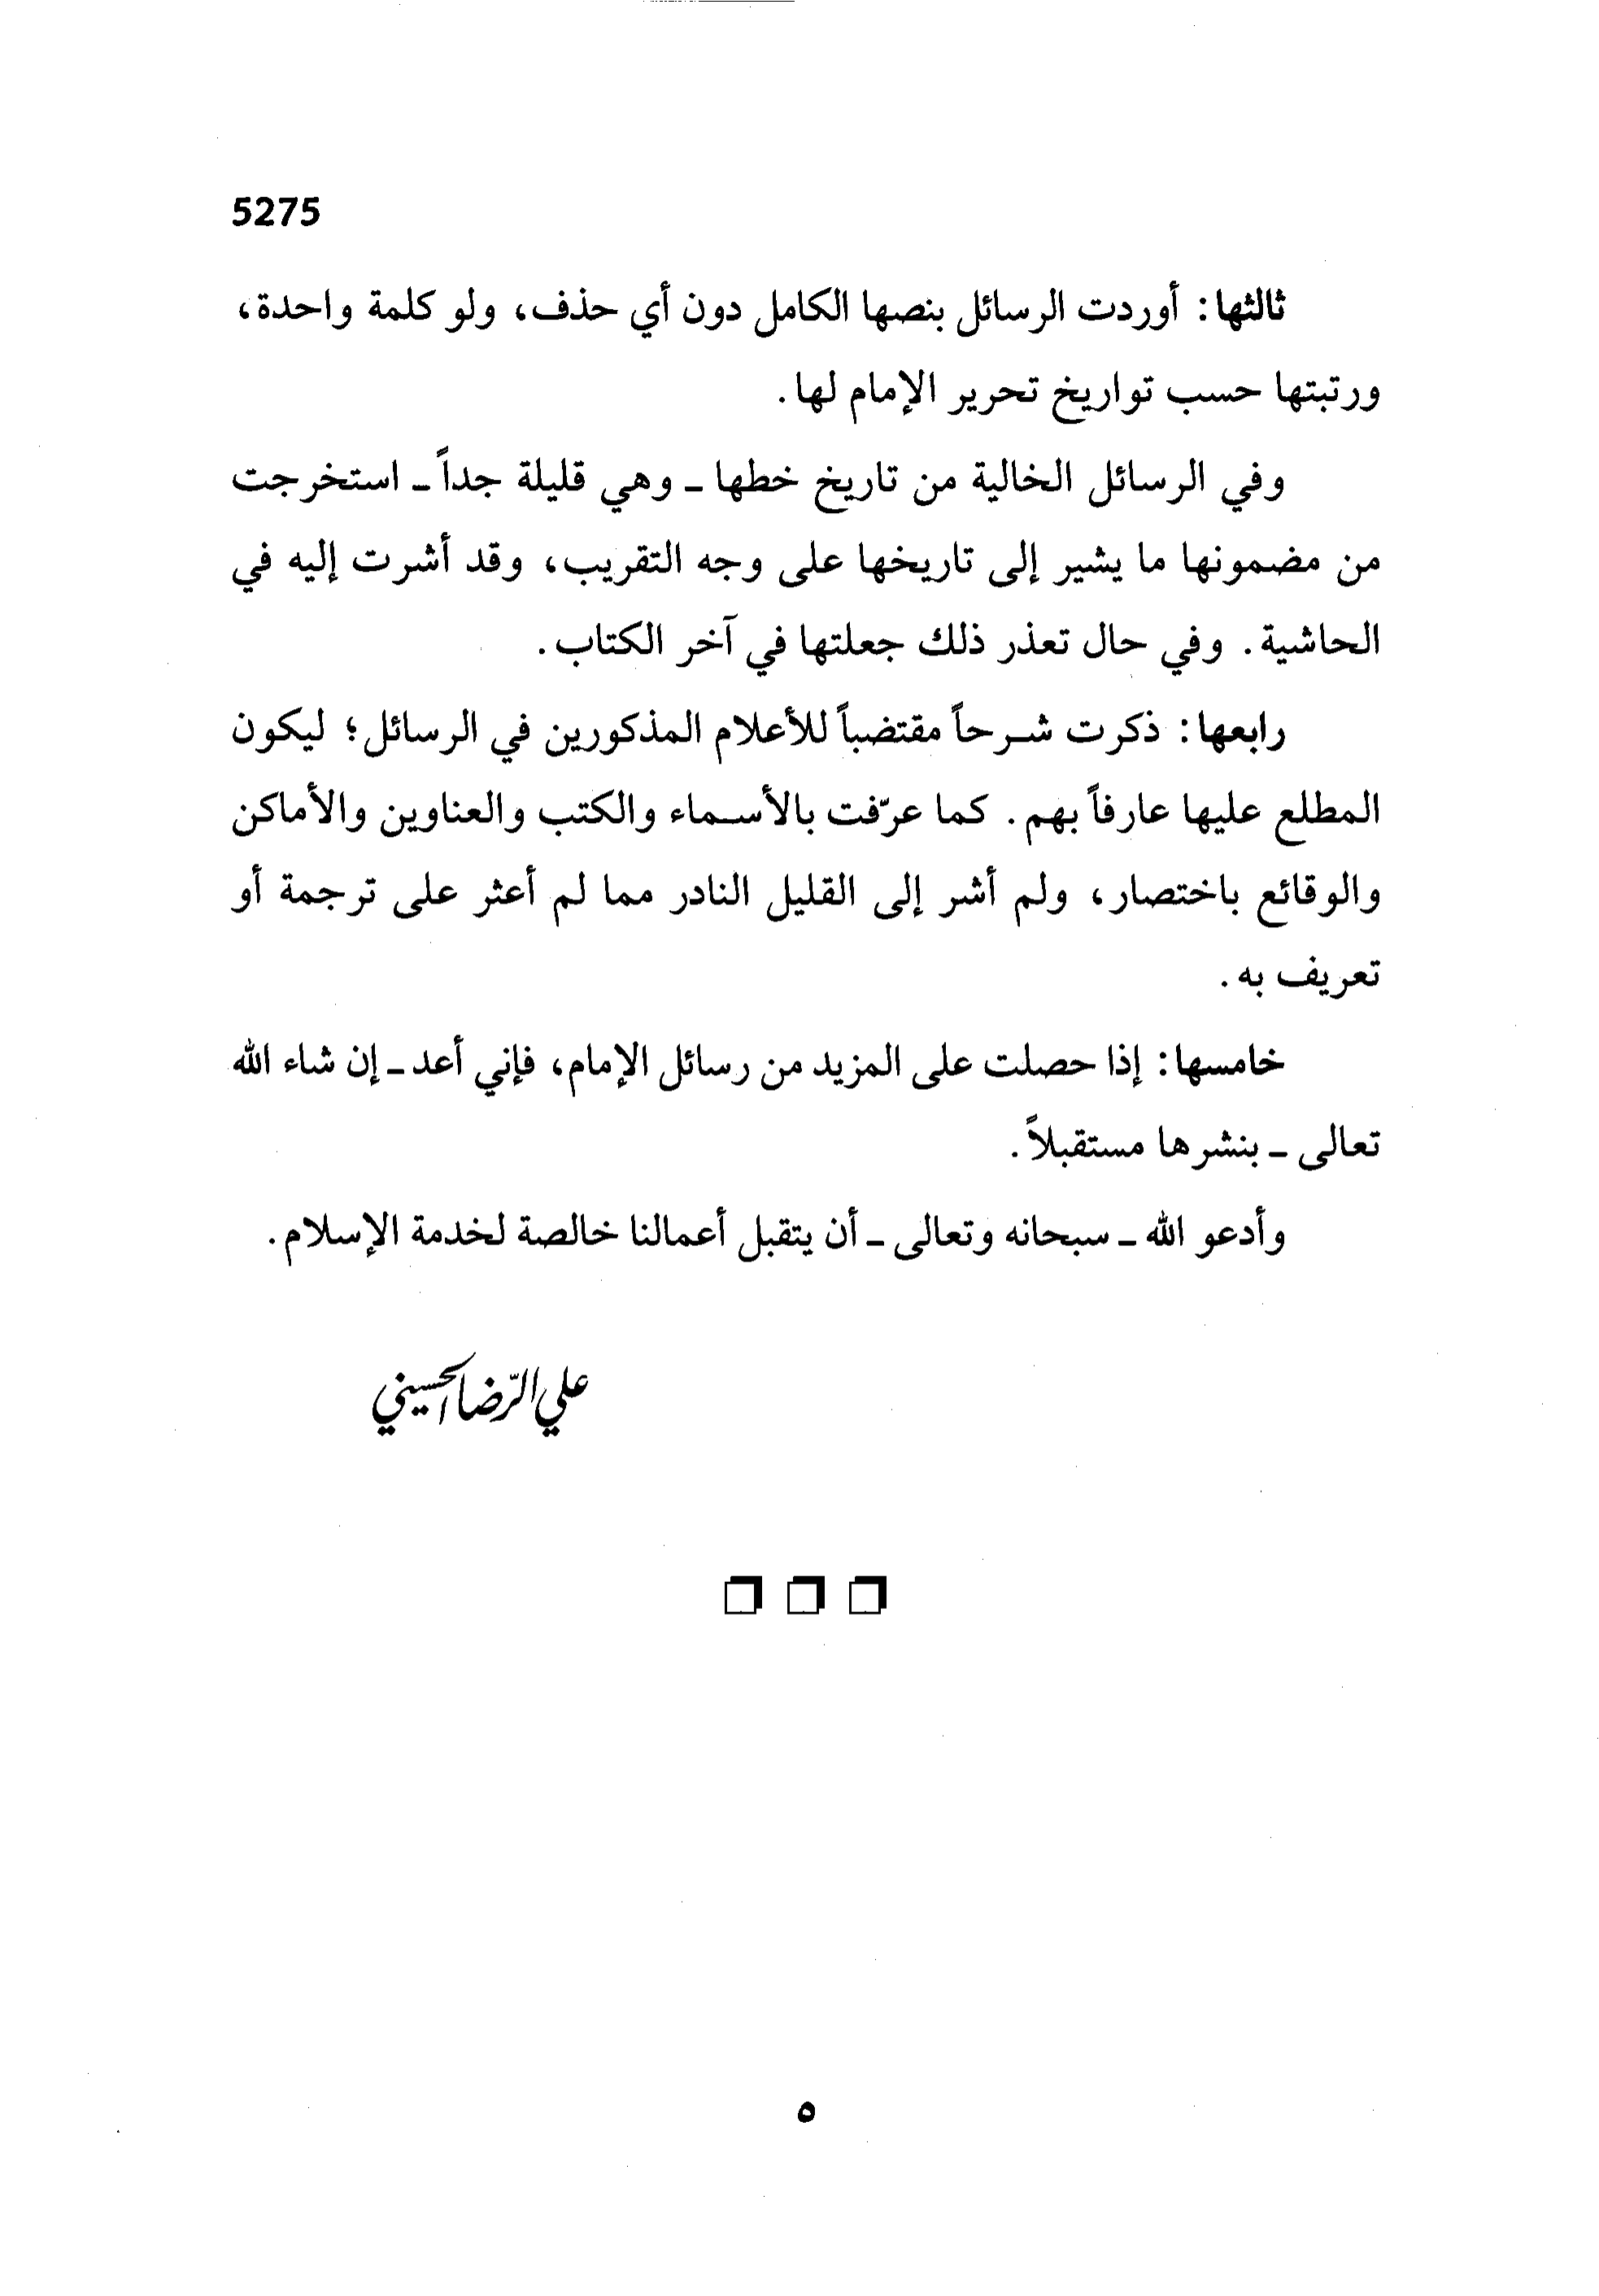 5275
ثالثها: أوردت الرسائل بنصها الكامل دون أي حذف، ولو كلمة واحدة،
ورتبتها حسب تواريخ تحرير الإمام لها.
وفي الرسائل الخالية من تاريخ خطها ـ وهي قليلة جداً ـ استخرجت
من مضمونها ما يشير إلى تاريخها على وجه التقريب، وقد أشرت إليه في
الحاشية. وفي حال تعذر ذلك جعلتها في آخر الكتاب.
رابعها: ذكرت شـرحاً مقتضباً للأعلام المذكورين في الرسائل؛ ليكون
المطلع عليها عارفاً بهم. كما عرّفت بالأسـماء والكتب والعناوين والأماكن
والوقائع باختصار، ولم أشر إلى القليل النادر مما لم أعثر على ترجمة أو
تعريف به.
خامسها: إذا حصلت على المزيد من رسائل الإمام، فإني أعد ـ إن شاء الله
تعالى ـ بنشرها مستقبلاً.
وأدعو الله ـ سبحانه وتعالى ـ أن يتقبل أعمالنا خالصة لخدمة الإسلام.
علي الرّضا الحسيني
٥